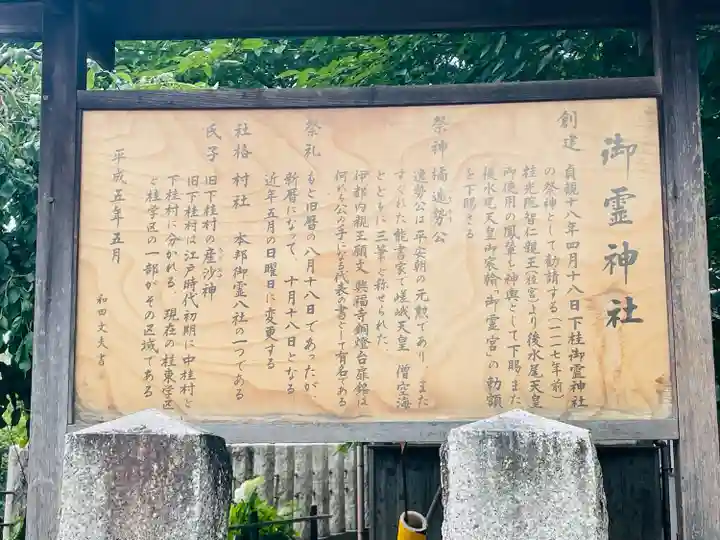 御霊神社
創建 貞観十八年四月十八日下桂御霊神社
の祭神として勧請する(一一一七年前)
桂光院智仁親王(桂宮)より後水尾天皇
御使用の鳳輦を神輿として下賜 また
後水尾天皇御宸翰「御霊宮」の勅額
を下賜さる
祭神 橘逸勢公
逸勢公は平安朝の元勲であり、また
すぐれた能書家で嵯峨天皇 僧空海
とともに三筆と称せられた
伊都内親王願文 興福寺銅燈台扉銘は
何れも公の手になる代表の書として有名である
祭礼 もと旧暦の八月十八日であったが、
新暦になって、十月十八日となる
近年五月の日曜日に変更する
社格 村社 本邦御霊八社の一つである
氏子 旧下桂村の産沙神
旧下桂村は江戸時代初期に中桂村と
下桂村に分かれる、現在の桂東学区
と桂学区の一部がその区域である
平成五年五月
和田文夫書